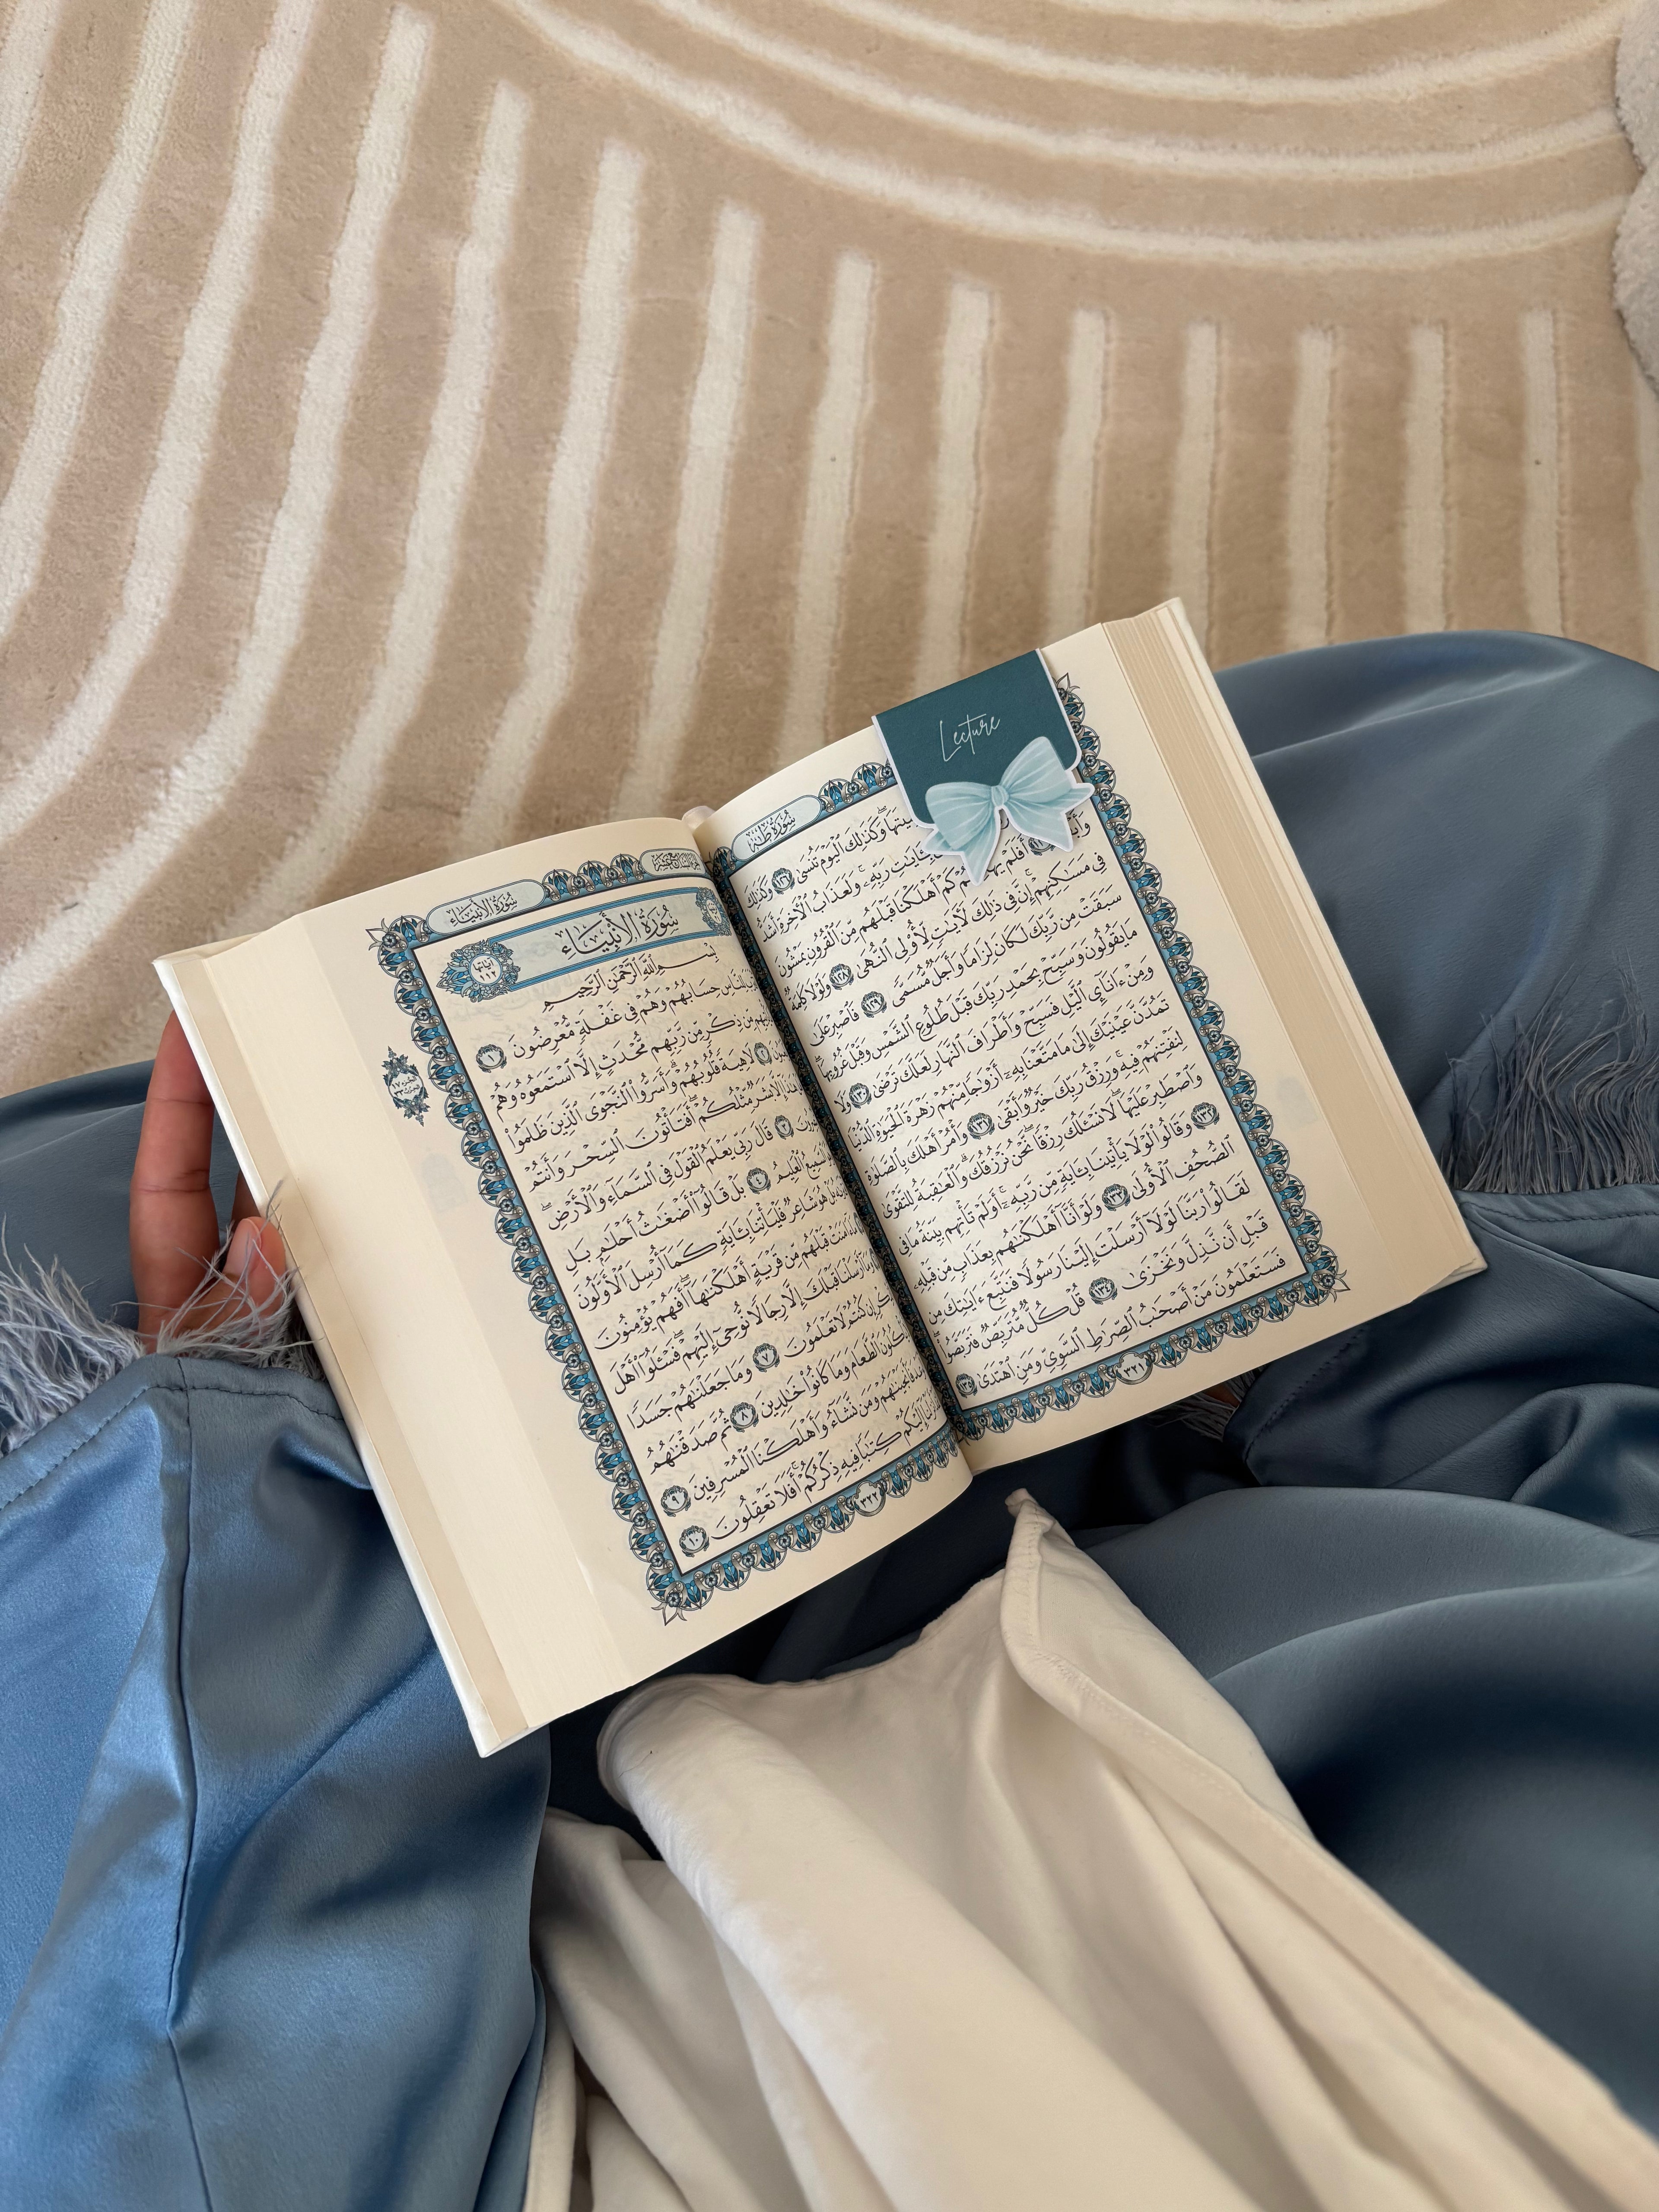 سُورَةُ طه
Lecture
وَكَذَٰلِكَ ٱلْيَوْمَ تُنسَىٰ ١٢٦ وَكَذَٰلِكَ
بِـَٔايَٰتِ رَبِّهِۦۚ وَلَعَذَابُ ٱلْأٓخِرَةِ أَشَدُّ
أَفَلَمْ كَمْ أَهْلَكْنَا قَبْلَهُم مِّنَ ٱلْقُرُونِ يَمْشُونَ
فِى مَسَٰكِنِهِمْۗ إِنَّ فِى ذَٰلِكَ لَأٓيَٰتٍ لِّأُو۟لِى ٱلنُّهَىٰ ١٢٨ وَلَوْلَا كَلِمَةٌ
سَبَقَتْ مِن رَّبِّكَ لَكَانَ لِزَامًا وَأَجَلٌ مُّسَمًّى ١٢٩ فَٱصْبِرْ عَلَىٰ
مَا يَقُولُونَ وَسَبِّحْ بِحَمْدِ رَبِّكَ قَبْلَ طُلُوعِ ٱلشَّمْسِ وَقَبْلَ غُرُوبِهَاۖ
وَمِنْ ءَانَآئِ ٱلَّيْلِ فَسَبِّحْ وَأَطْرَافَ ٱلنَّهَارِ لَعَلَّكَ تَرْضَىٰ ١٣٠ وَلَا
تَمُدَّنَّ عَيْنَيْكَ إِلَىٰ مَا مَتَّعْنَا بِهِۦٓ أَزْوَٰجًا مِّنْهُمْ زَهْرَةَ ٱلْحَيَوٰةِ ٱلدُّنْيَا
لِنَفْتِنَهُمْ فِيهِۚ وَرِزْقُ رَبِّكَ خَيْرٌ وَأَبْقَىٰ ١٣١ وَأْمُرْ أَهْلَكَ بِٱلصَّلَوٰةِ
وَٱصْطَبِرْ عَلَيْهَاۖ لَا نَسْـَٔلُكَ رِزْقًاۖ نَّحْنُ نَرْزُقُكَۗ وَٱلْعَٰقِبَةُ لِلتَّقْوَىٰ
١٣٢ وَقَالُوا۟ لَوْلَا يَأْتِينَا بِـَٔايَةٍ مِّن رَّبِّهِۦٓۚ أَوَلَمْ تَأْتِهِم بَيِّنَةُ مَا فِى
ٱلصُّحُفِ ٱلْأُولَىٰ ١٣٣ وَلَوْ أَنَّآ أَهْلَكْنَٰهُم بِعَذَابٍ مِّن قَبْلِهِۦ
لَقَالُوا۟ رَبَّنَا لَوْلَآ أَرْسَلْتَ إِلَيْنَا رَسُولًا فَنَتَّبِعَ ءَايَٰتِكَ مِن
قَبْلِ أَن نَّذِلَّ وَنَخْزَىٰ ١٣٤ قُلْ كُلٌّ مُّتَرَبِّصٌ فَتَرَبَّصُوا۟ۖ
فَسَتَعْلَمُونَ مَنْ أَصْحَٰبُ ٱلصِّرَٰطِ ٱلسَّوِىِّ وَمَنِ ٱهْتَدَىٰ ١٣٥
٣٢١
سُورَةُ الأَنبِيَاء
سُورَةُ الأَنبِيَاءِ
آيَاتُهَا ١١٢
بِسْمِ ٱللَّهِ ٱلرَّحْمَٰنِ ٱلرَّحِيمِ
لِلنَّاسِ حِسَابُهُمْ وَهُمْ فِى غَفْلَةٍ مُّعْرِضُونَ ١
مِّن ذِكْرٍ مِّن رَّبِّهِم مُّحْدَثٍ إِلَّا ٱسْتَمَعُوهُ وَهُمْ
٢ لَاهِيَةً قُلُوبُهُمْۗ وَأَسَرُّوا۟ ٱلنَّجْوَى ٱلَّذِينَ ظَلَمُوا۟
إِلَّا بَشَرٌ مِّثْلُكُمْۖ أَفَتَأْتُونَ ٱلسِّحْرَ وَأَنتُمْ
٣ قَالَ رَبِّى يَعْلَمُ ٱلْقَوْلَ فِى ٱلسَّمَآءِ وَٱلْأَرْضِۖ
ٱلسَّمِيعُ ٱلْعَلِيمُ ٤ بَلْ قَالُوٓا۟ أَضْغَٰثُ أَحْلَٰمٍۭ بَلِ
بَلْ هُوَ شَاعِرٌ فَلْيَأْتِنَا بِـَٔايَةٍ كَمَآ أُرْسِلَ ٱلْأَوَّلُونَ
قَبْلَهُم مِّن قَرْيَةٍ أَهْلَكْنَٰهَآۖ أَفَهُمْ يُؤْمِنُونَ
أَرْسَلْنَا قَبْلَكَ إِلَّا رِجَالًا نُّوحِىٓ إِلَيْهِمْۖ فَسْـَٔلُوٓا۟ أَهْلَ
إِن كُنتُمْ لَا تَعْلَمُونَ ٧ وَمَا جَعَلْنَٰهُمْ جَسَدًا
ٱلطَّعَامَ وَمَا كَانُوا۟ خَٰلِدِينَ ٨ ثُمَّ صَدَقْنَٰهُمُ
فَأَنجَيْنَٰهُمْ وَمَن نَّشَآءُ وَأَهْلَكْنَا ٱلْمُسْرِفِينَ ٩
إِلَيْكُمْ كِتَٰبًا فِيهِ ذِكْرُكُمْۖ أَفَلَا تَعْقِلُونَ ١٠
٣٢٢